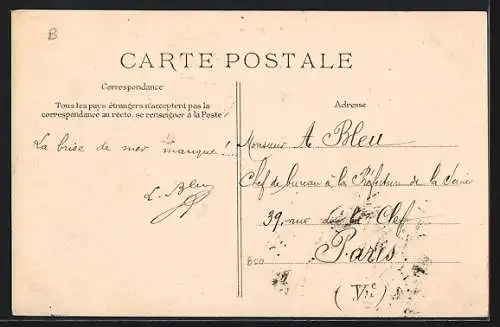 B
CARTE POSTALE
Correspondance
Tous les pays étrangers n'acceptent pas la
correspondance au recto. se renseigner à la Poste
La brise de mer manque !...
L. Bleu
Adresse
Monsieur A. Bleu
Chef de bureau à la Préfecture de la Seine
39, rue de la Clef
Paris
(Ve)
B50